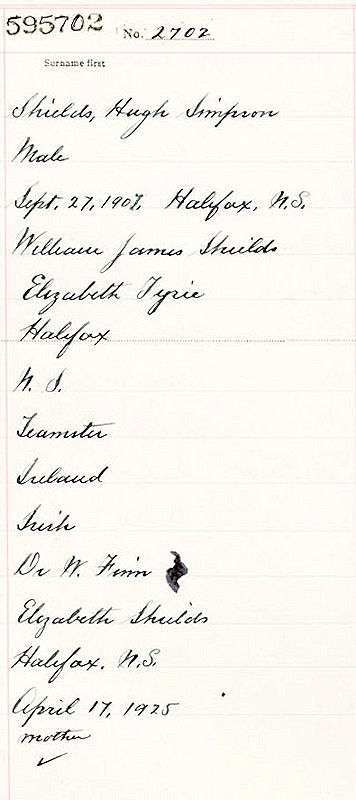 595702
No. 2702
Surname first
Shields, Hugh Simpson
Male
Sept. 27, 1907, Halifax, N.S.
William James Shields
Elizabeth Tyrie
Halifax
N. S.
Teamster
Ireland
Irish
Dr W. Finn
Elizabeth Shields
Halifax, N.S.
April 17, 1925
mother
✓